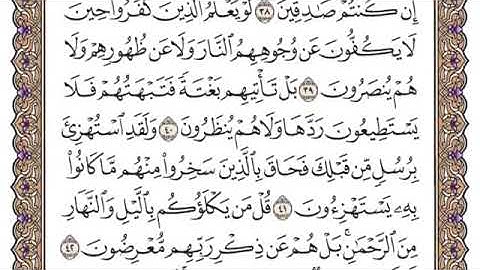 إِن كُنتُمْ صَٰدِقِينَ ٣٨ لَوْ يَعْلَمُ ٱلَّذِينَ كَفَرُوا۟ حِينَ
لَا يَكُفُّونَ عَن وُجُوهِهِمُ ٱلنَّارَ وَلَا عَن ظُهُورِهِمْ وَلَا
هُمْ يُنصَرُونَ ٣٩ بَلْ تَأْتِيهِم بَغْتَةً فَتَبْهَتُهُمْ فَلَا
يَسْتَطِيعُونَ رَدَّهَا وَلَا هُمْ يُنظَرُونَ ٤٠ وَلَقَدِ ٱسْتُهْزِئَ
بِرُسُلٍ مِّن قَبْلِكَ فَحَاقَ بِٱلَّذِينَ سَخِرُوا۟ مِنْهُم مَّا كَانُوا۟
بِهِۦ يَسْتَهْزِءُونَ ٤١ قُلْ مَن يَكْلَؤُكُم بِٱلَّيْلِ وَٱلنَّهَارِ
مِنَ ٱلرَّحْمَٰنِ ۗ بَلْ هُمْ عَن ذِكْرِ رَبِّهِم مُّعْرِضُونَ ٤٢